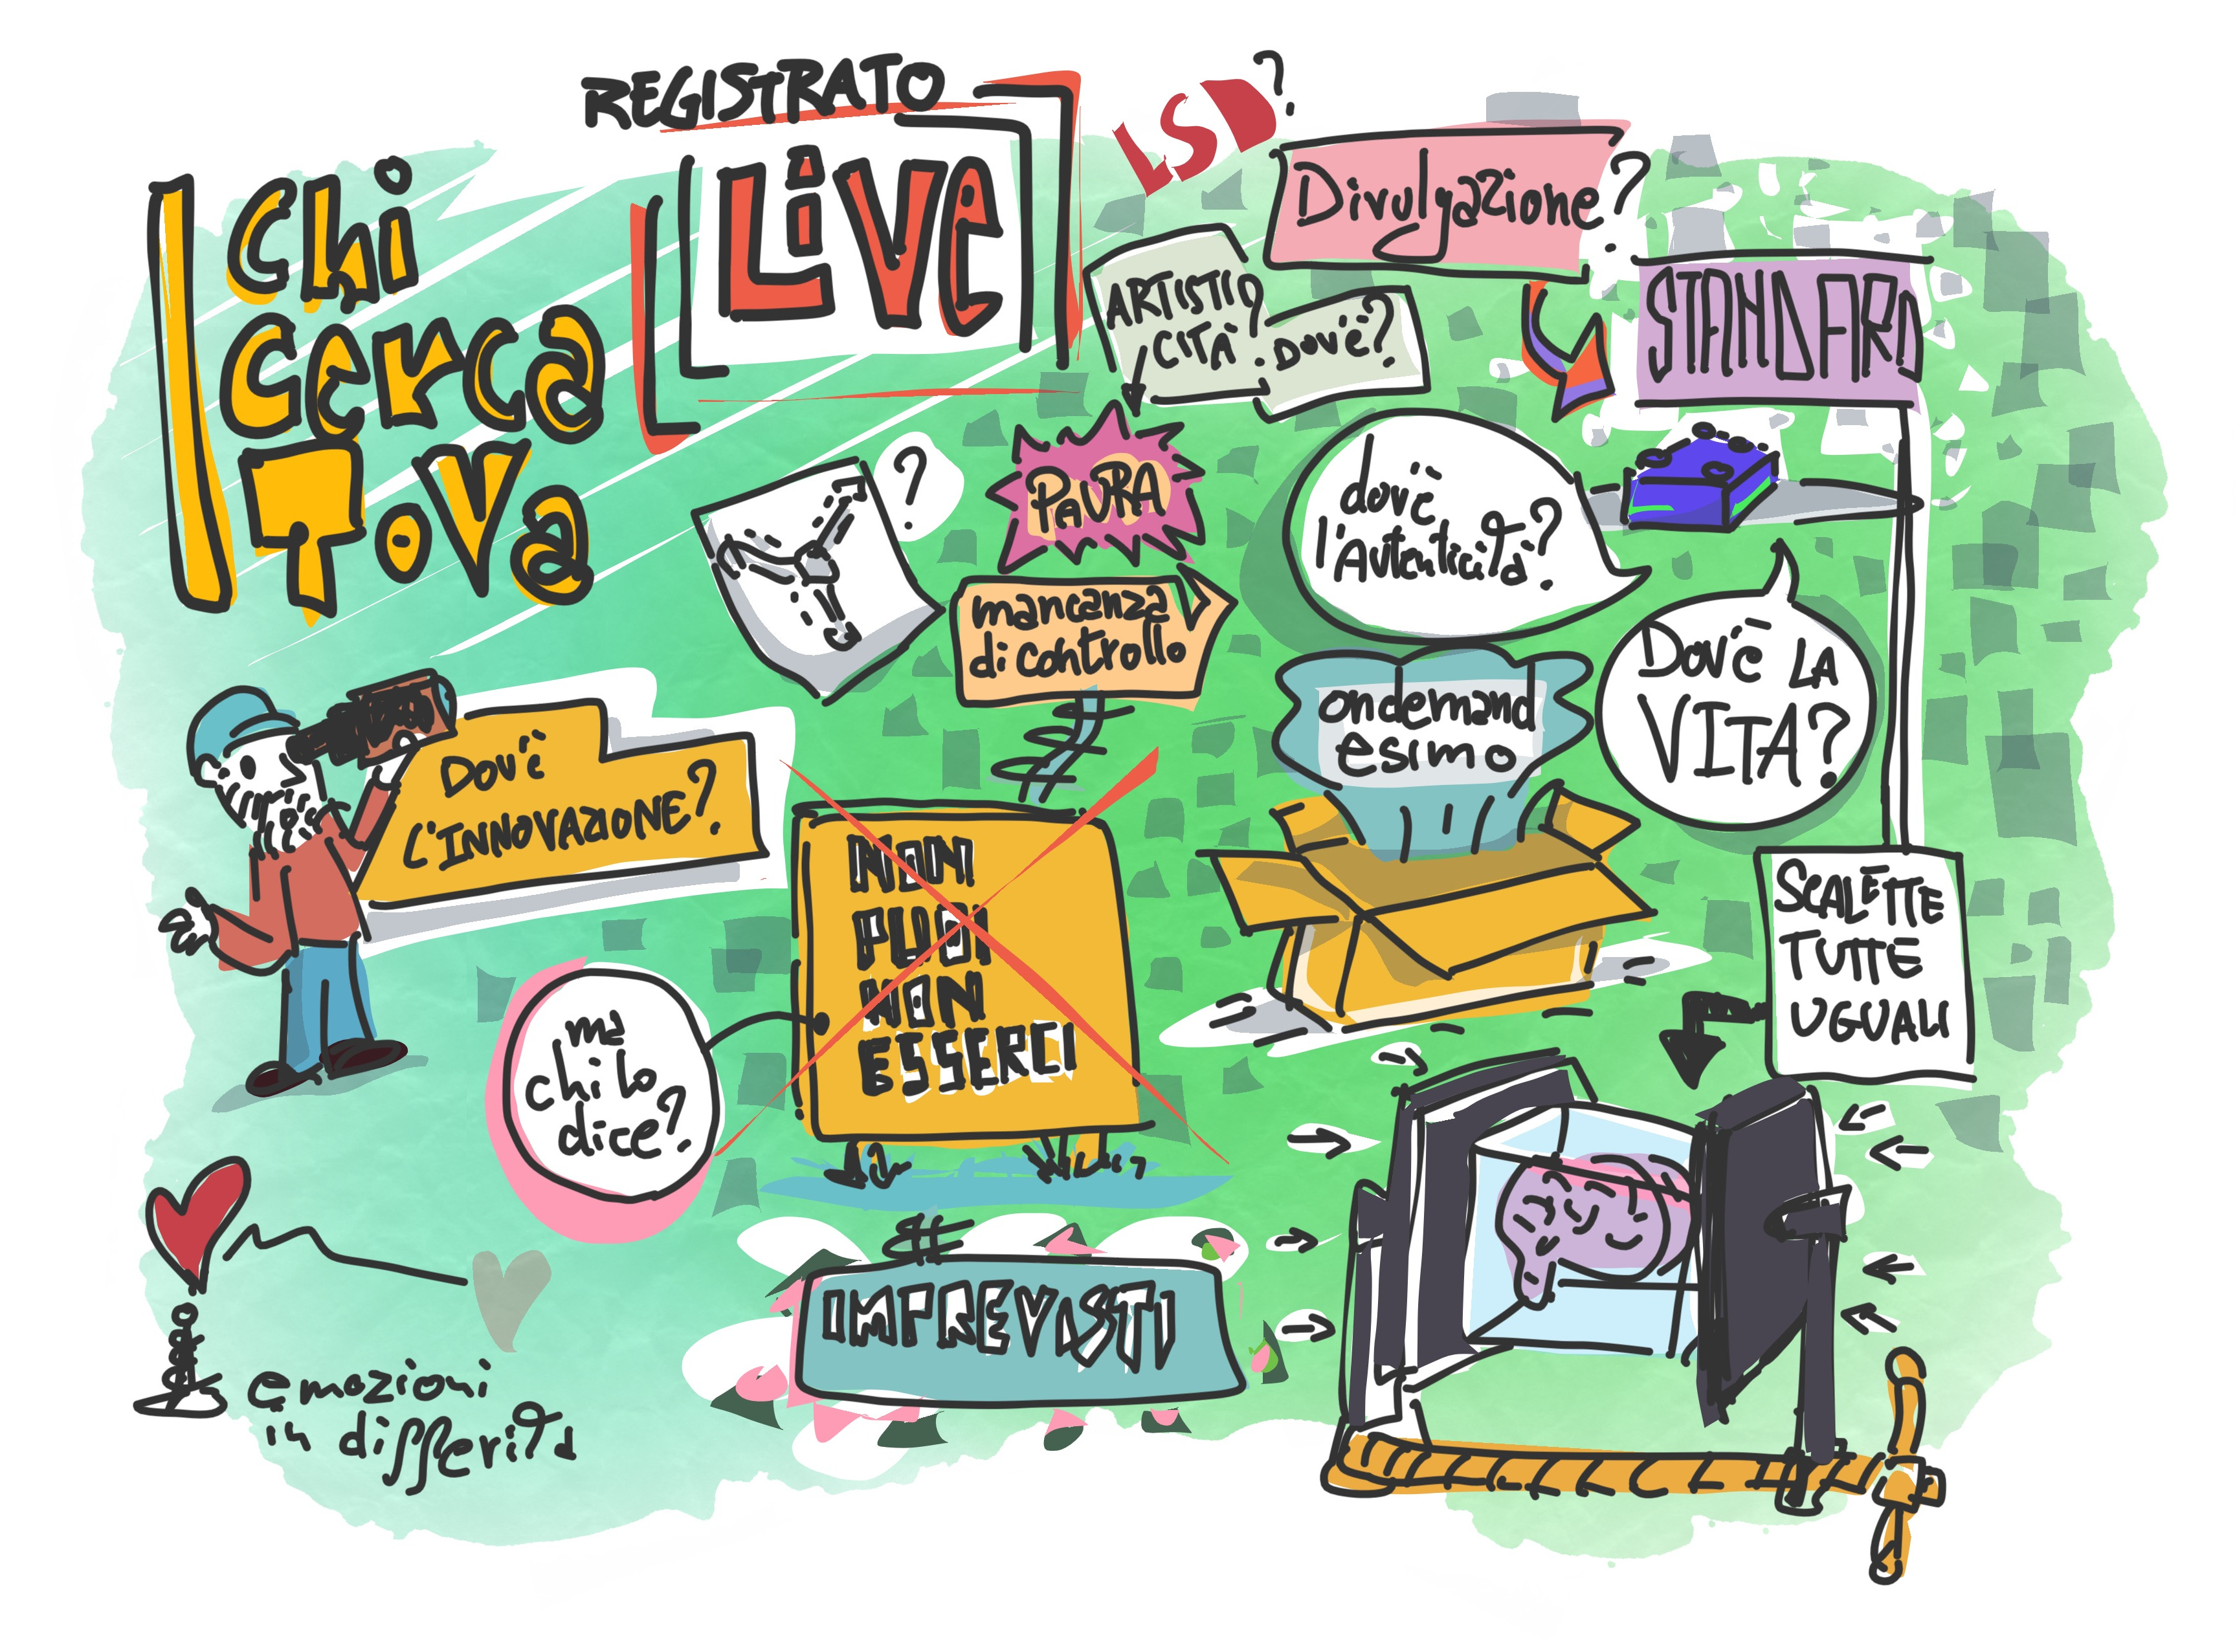 REGISTRATO
LiVe
LSD?
Chi
cerca
ToVa
Divulgazione?
ARTISTI
CITÀ?
DOV'È?
STANDARD
?
PAURA
mancanza
di controllo
dov'è
l'Autenticità?
DOV'È LA
VITA?
ondemand
esimo
DOV'È
L'INNOVAZIONE?
NON
PUOI
NON
ESSERCI
ma
chi lo
dice?
SCALETTE
TUTTE
UGUALI
IMPREVISTI
emozioni
in differita